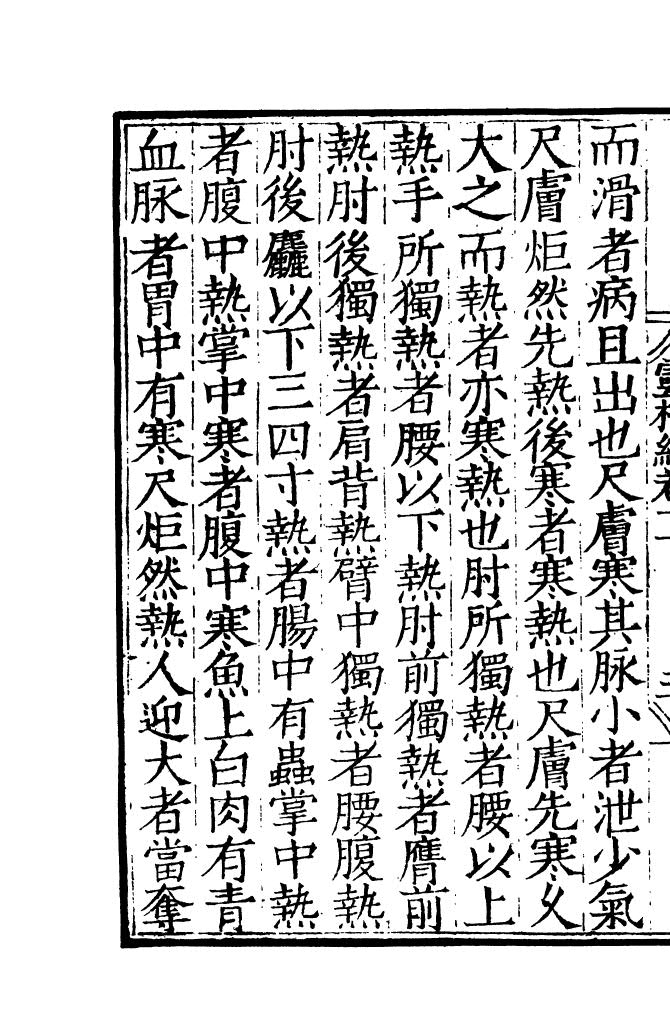 而滑者病且出也尺膚寒其脉小者泄少氣
尺膚炬然先熱後寒者寒熱也尺膚先寒久
大之而熱者亦寒熱也肘所獨熱者腰以上
熱手所獨熱者腰以下熱肘前獨熱者膺前
熱肘後獨熱者肩背熱臂中獨熱者腰腹熱
肘後麤以下三四寸熱者腸中有蟲掌中熱
者腹中熱掌中寒者腹中寒魚上白肉有青
血脉者胃中有寒尺炬然熱人迎大者當奪